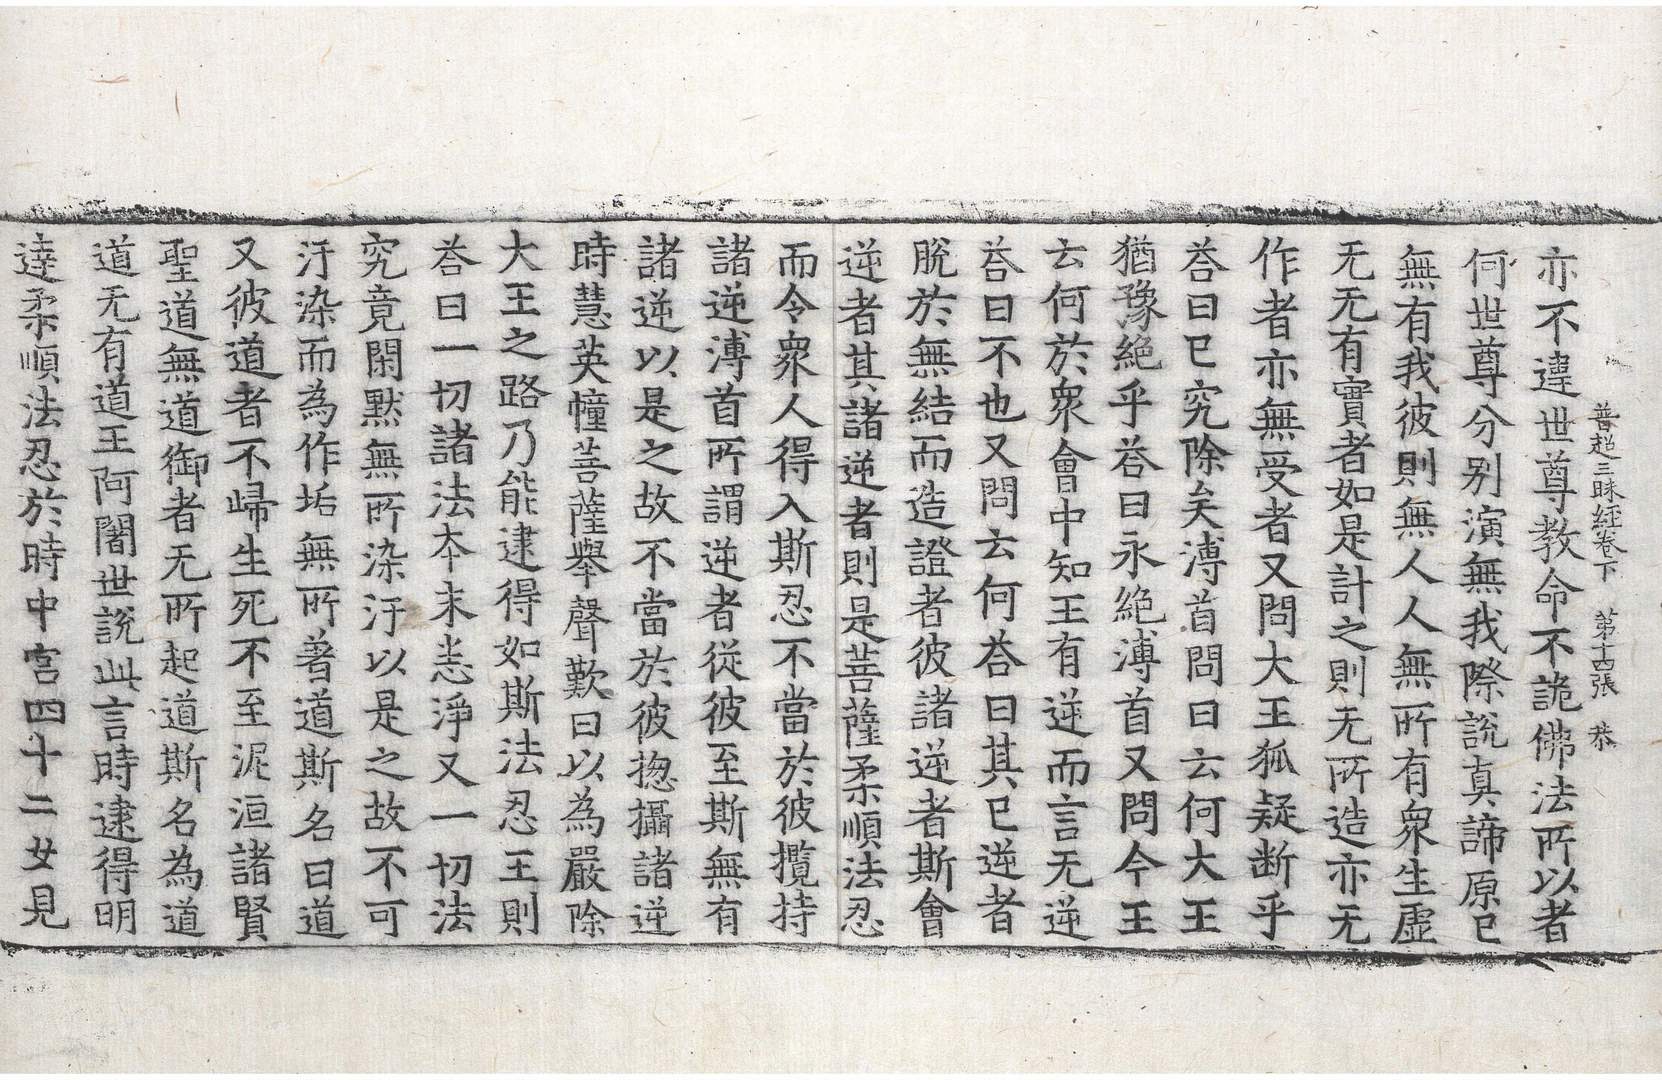 普超三昧經卷下　第十四張　恭
亦不違世尊教命不詭佛法所以者
何世尊分别演無我際說真諦原已
無有我彼則無人人無所有衆生虛
无无有實者如是計之則无所造亦无
作者亦無受者又問大王狐疑断乎
荅曰已究除矣溥首問曰云何大王
猶豫絕乎荅曰永絕溥首又問今王
云何於衆會中知王有逆而言无逆
荅曰不也又問云何荅曰其已逆者
脫於無結而造證者彼諸逆者斯會
逆者其諸逆者則是菩薩柔順法忍
而令衆人得入斯忍不當於彼攬持
諸逆溥首所謂逆者從彼至斯無有
諸逆以是之故不當於彼揔攝諸逆
時慧英幢菩薩舉聲歎曰以為嚴除
大王之路乃能逮得如斯法忍王則
荅曰一切諸法本末恙淨又一切法
究竟閑默無所染汙以是之故不可
汙染而為作垢無所著道斯名曰道
又彼道者不歸生死不至泥洹諸賢
聖道無道御者无所起道斯名為道
道无有道王阿闍世說此言時逮得明
達柔順法忍於時中宮四十二女見